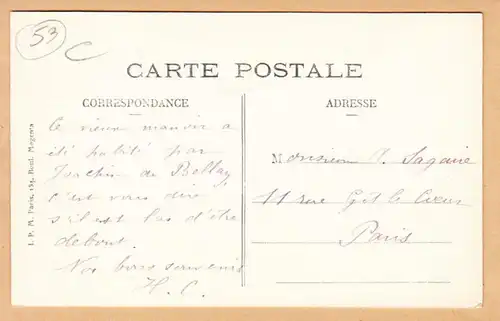 53
C
CARTE POSTALE
CORRESPONDANCE
Ce vieux manoir a
été habité par
Joachin du Bellay
c'est vous dire
s'il est las d'être
debout.
Nos bons souvenirs
H. C.
ADRESSE
Monsieur P. Sagaire
11 rue Git le Cœur
Paris
I. P. M. Paris, Boul. Magenta